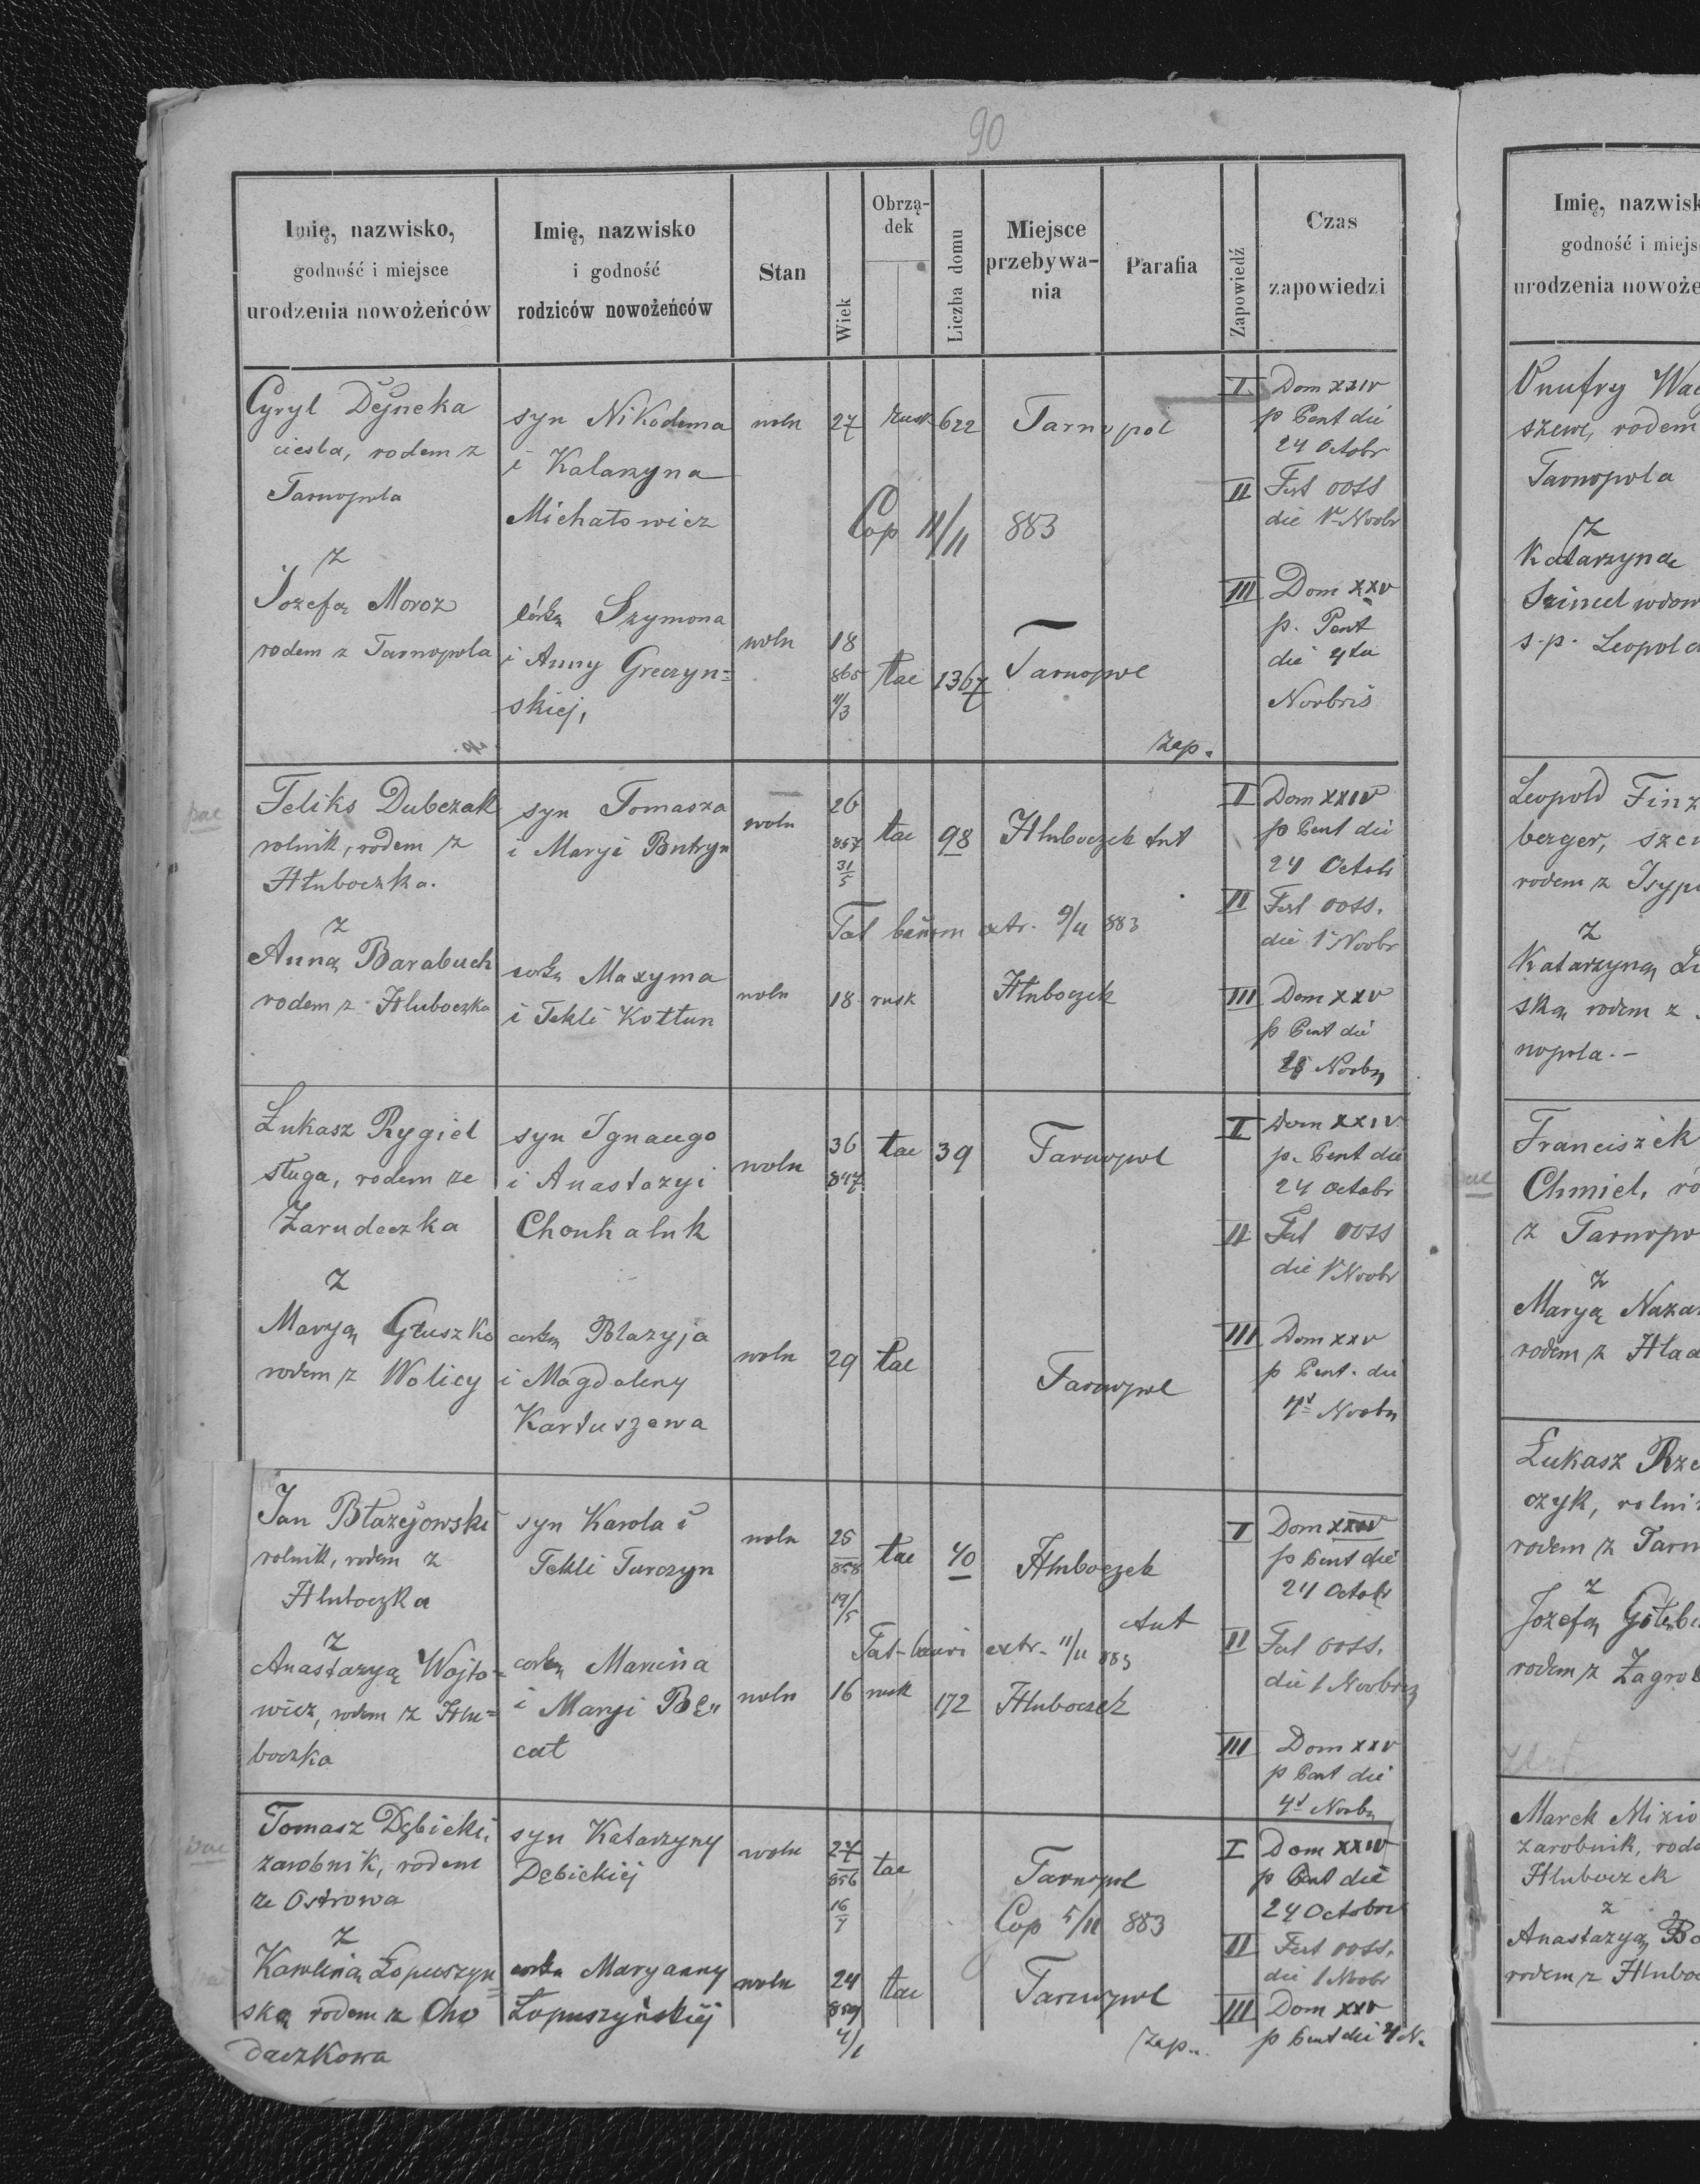 90
Imię, nazwisko,
godność i miejsce
urodzenia nowożeńców
Imię, nazwisko
i godność
rodziców nowożeńców
Stan
Wiek
Obrzą-
dek
Liczba domu
Miejsce
przebywa-
nia
Parafia
Zapowiedź
Czas
zapowiedzi
Cyryl Dejneka
ciesla, rodem z
Tarnopola
z
Jozefą Moroz
rodem z Tarnopola
syn Nikodema
i Katarzyna
Michałowicz
córką Szymona
i Anny Greczyn=
skiej,
woln 27 rusk 622 Tarnopol
Cop 11/11 883
woln 18 łac 1367 Tarnopol
865
11/3
Zap.
I Dom XXIV
p Pent die
24 Octobr
II Fest OOSS
die 1 Novbr
III Dom XXV
p. Pent
die 4ta
Novbris
pac
Feliks Dubczak
rolnik, rodem z
Hłuboczka.
z
Anną Barabuch
rodem z Hluboczka
syn Tomasza
i Maryi Butryn
corką Maxyma
i Tekli Kottun
woln 26 łac 98 Hluboczek
857
31/5
extr. 9/11 883
woln 18 rusk Hłuboczek
I Dom XXIV
p Pent die
24 Octob
II Fest OOSS.
die 1 Novbr
III Dom XXV
p Pent die
Łukasz Rygiel
sługa, rodem ze
Zarudeczka
z
Maryą Głuszko
rodem z Wolicy
syn Ignacego
i Anastazyi
Chouhaluk
corką Błazyja
i Magdaleny
Kartuszewa
woln 36 łac 39 Tarnopol
847
woln 29 łac Tarnopol
I Dom XXIV
p. Pent die
24 Octobr
II Fest OOSS
die 1 Novbr
III Dom XXV
p Pent. die
Jan Błażejowski
rolnik, rodem z
Hluboczka
z
Anastazyą Wojto=
wicz, rodem z Hlu=
boczka
syn Karola i
Tekli Turczyn
corką Marcina
i Maryi
cat
woln 25 łac 40 Hluboczek
858
19/5
extr. 11/11 883
woln 16 rusk 172 Hluboczek
I Dom XXIV
p Pent die
24 Octobr
II Fest OOSS.
die 1 Novbris
III Dom XXV
p Pent die
pac
Tomasz Dębicki,
zarobnik, rodem
ze Ostrowa
z
Karoliną Łopuszyn
ską rodem z Cho
daczkowa
syn Katarzyny
Dębickiej
corką Maryanny
Łopuszyńskiej
woln 27 łac Tarnopol
856
Cop 5/11 883
woln 24 łac Tarnopol
859
4/1
Zap.
I Dom XXIV
p Pent die
24 Octobris
II Fest OOSS.
die 1 Novbr
III Dom XXV
p Pent die 4 N.
Imię, nazwisk
godność i miejs
urodzenia nowoże
Onufry Wac
szewc, rodem
Tarnopola
z
Katarzyną
wdow
s.p. Leopold
Leopold Finz
berger, szew
rodem z
z
Katarzyną
ską rodem z
nopola.-
Franciszek
Chmiel, ro
z Tarnopo
z
Maryą Nazar
rodem z Hład
Łukasz Rze
czyk, rolni
rodem z Tarn
z
Jozefą Gołeb
rodem z Zagrob
Marek Mizio
zarobnik, rod
Hluboczek
z
Anastazyą Bo
rodem z Hluboc